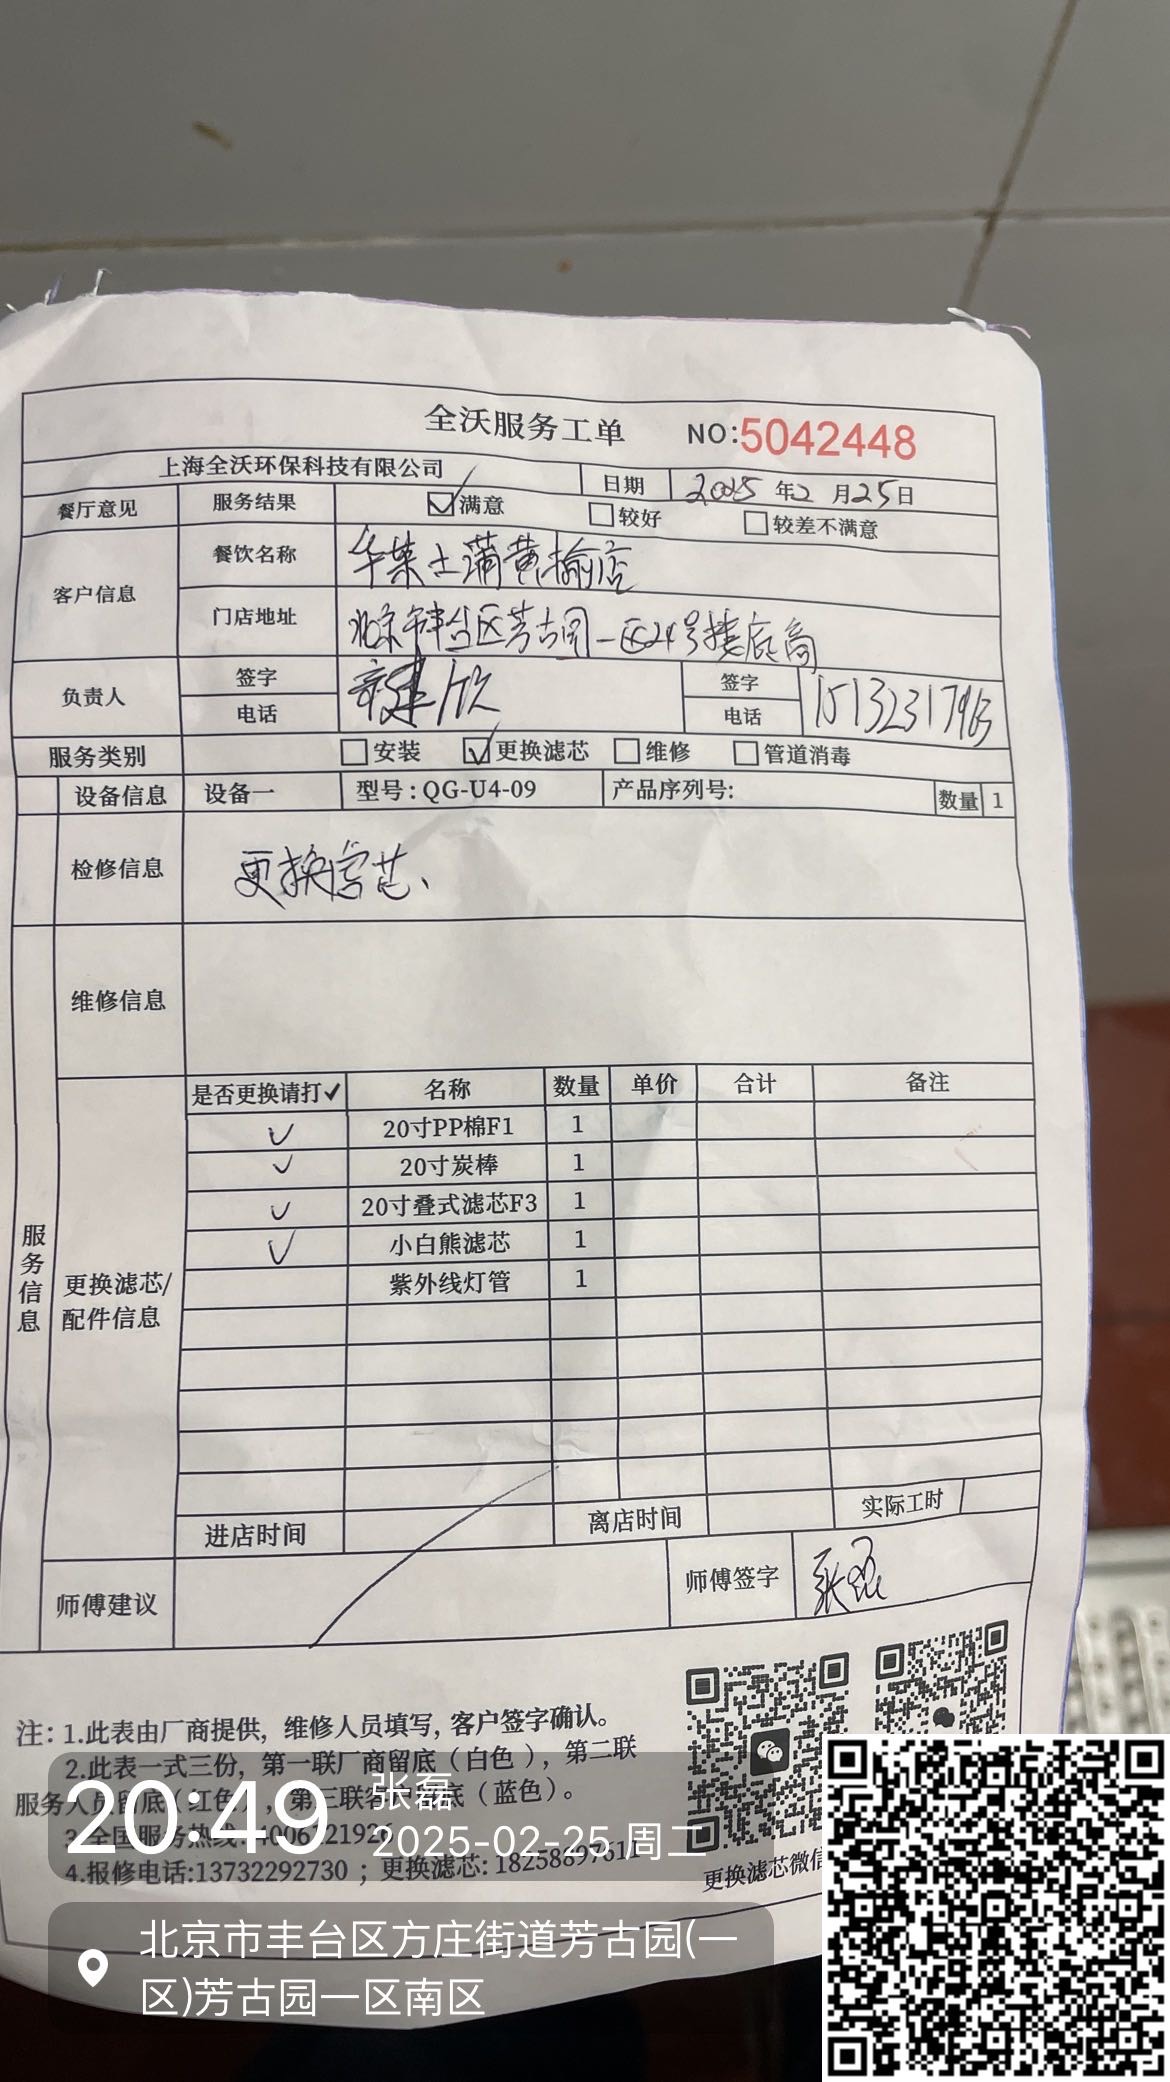 全沃服务工单 NO:5042448
上海全沃环保科技有限公司 日期 2025年2月25日
餐厅意见 服务结果 ☑满意 □较好 □较差不满意
客户信息 餐饮名称 华莱士蒲黄榆店
门店地址 北京市丰台区芳古园一区24号楼底商
负责人 签字 签字
电话 电话
服务类别 □安装 ☑更换滤芯 □维修 □管道消毒
设备信息 设备一 型号:QG-U4-09 产品序列号: 数量 1
检修信息 更换
维修信息
服务信息
更换滤芯/配件信息
是否更换请打✓ 名称 数量 单价 合计 备注
✓ 20寸PP棉F1 1
✓ 20寸炭棒 1
✓ 20寸叠式滤芯F3 1
✓ 小白熊滤芯 1
紫外线灯管 1
进店时间 离店时间 实际工时
师傅建议 师傅签字 张磊
注: 1.此表由厂商提供, 维修人员填写, 客户签字确认。
2.此表一式三份, 第一联厂商留底（白色）, 第二联
服务人员留底（红色）, 第三联客户留底（蓝色）。
3.全国服务热线:
4.报修电话:13732292730 ; 更换滤芯: 18258897611
更换滤芯微信
20:49 张磊
2025-02-25 周二
北京市丰台区方庄街道芳古园(一
区)芳古园一区南区